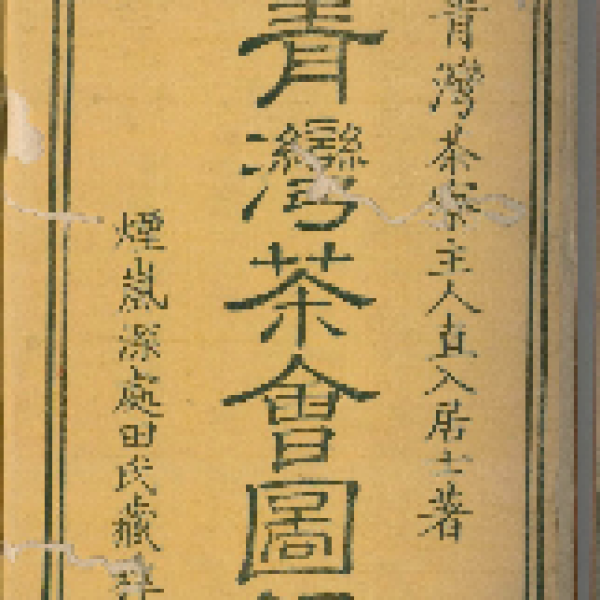 青灣茶寮主人直入居士著
青灣茶會圖
煙嵐深處田氏藏梓